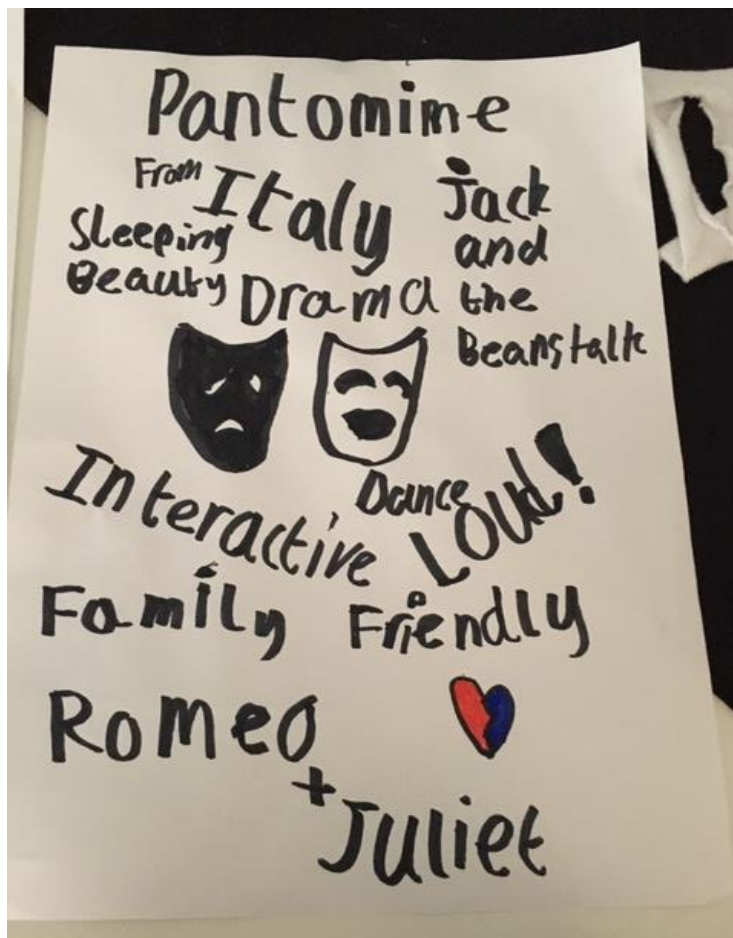 Pantomime
From Italy
Jack
and
the
Beanstalk
Sleeping
Beauty
Drama
Interactive
Dance
LOUd!
Family Friendly
Romeo
+
Juliet